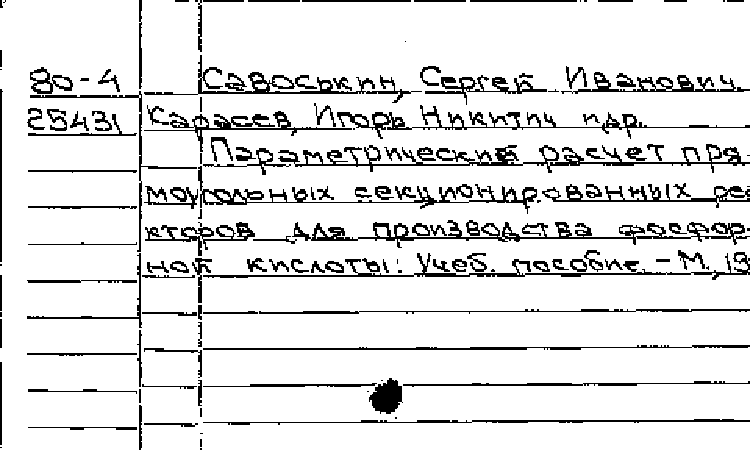 80-4 Савоськин, Сергей Иванович,
25431 Карасев, Игорь Никитич и др.
Параметрический расчет пря-
моугольных секционированных реа-
кторов для производства фосфор-
ной кислоты: Учеб. пособие. - М., 19